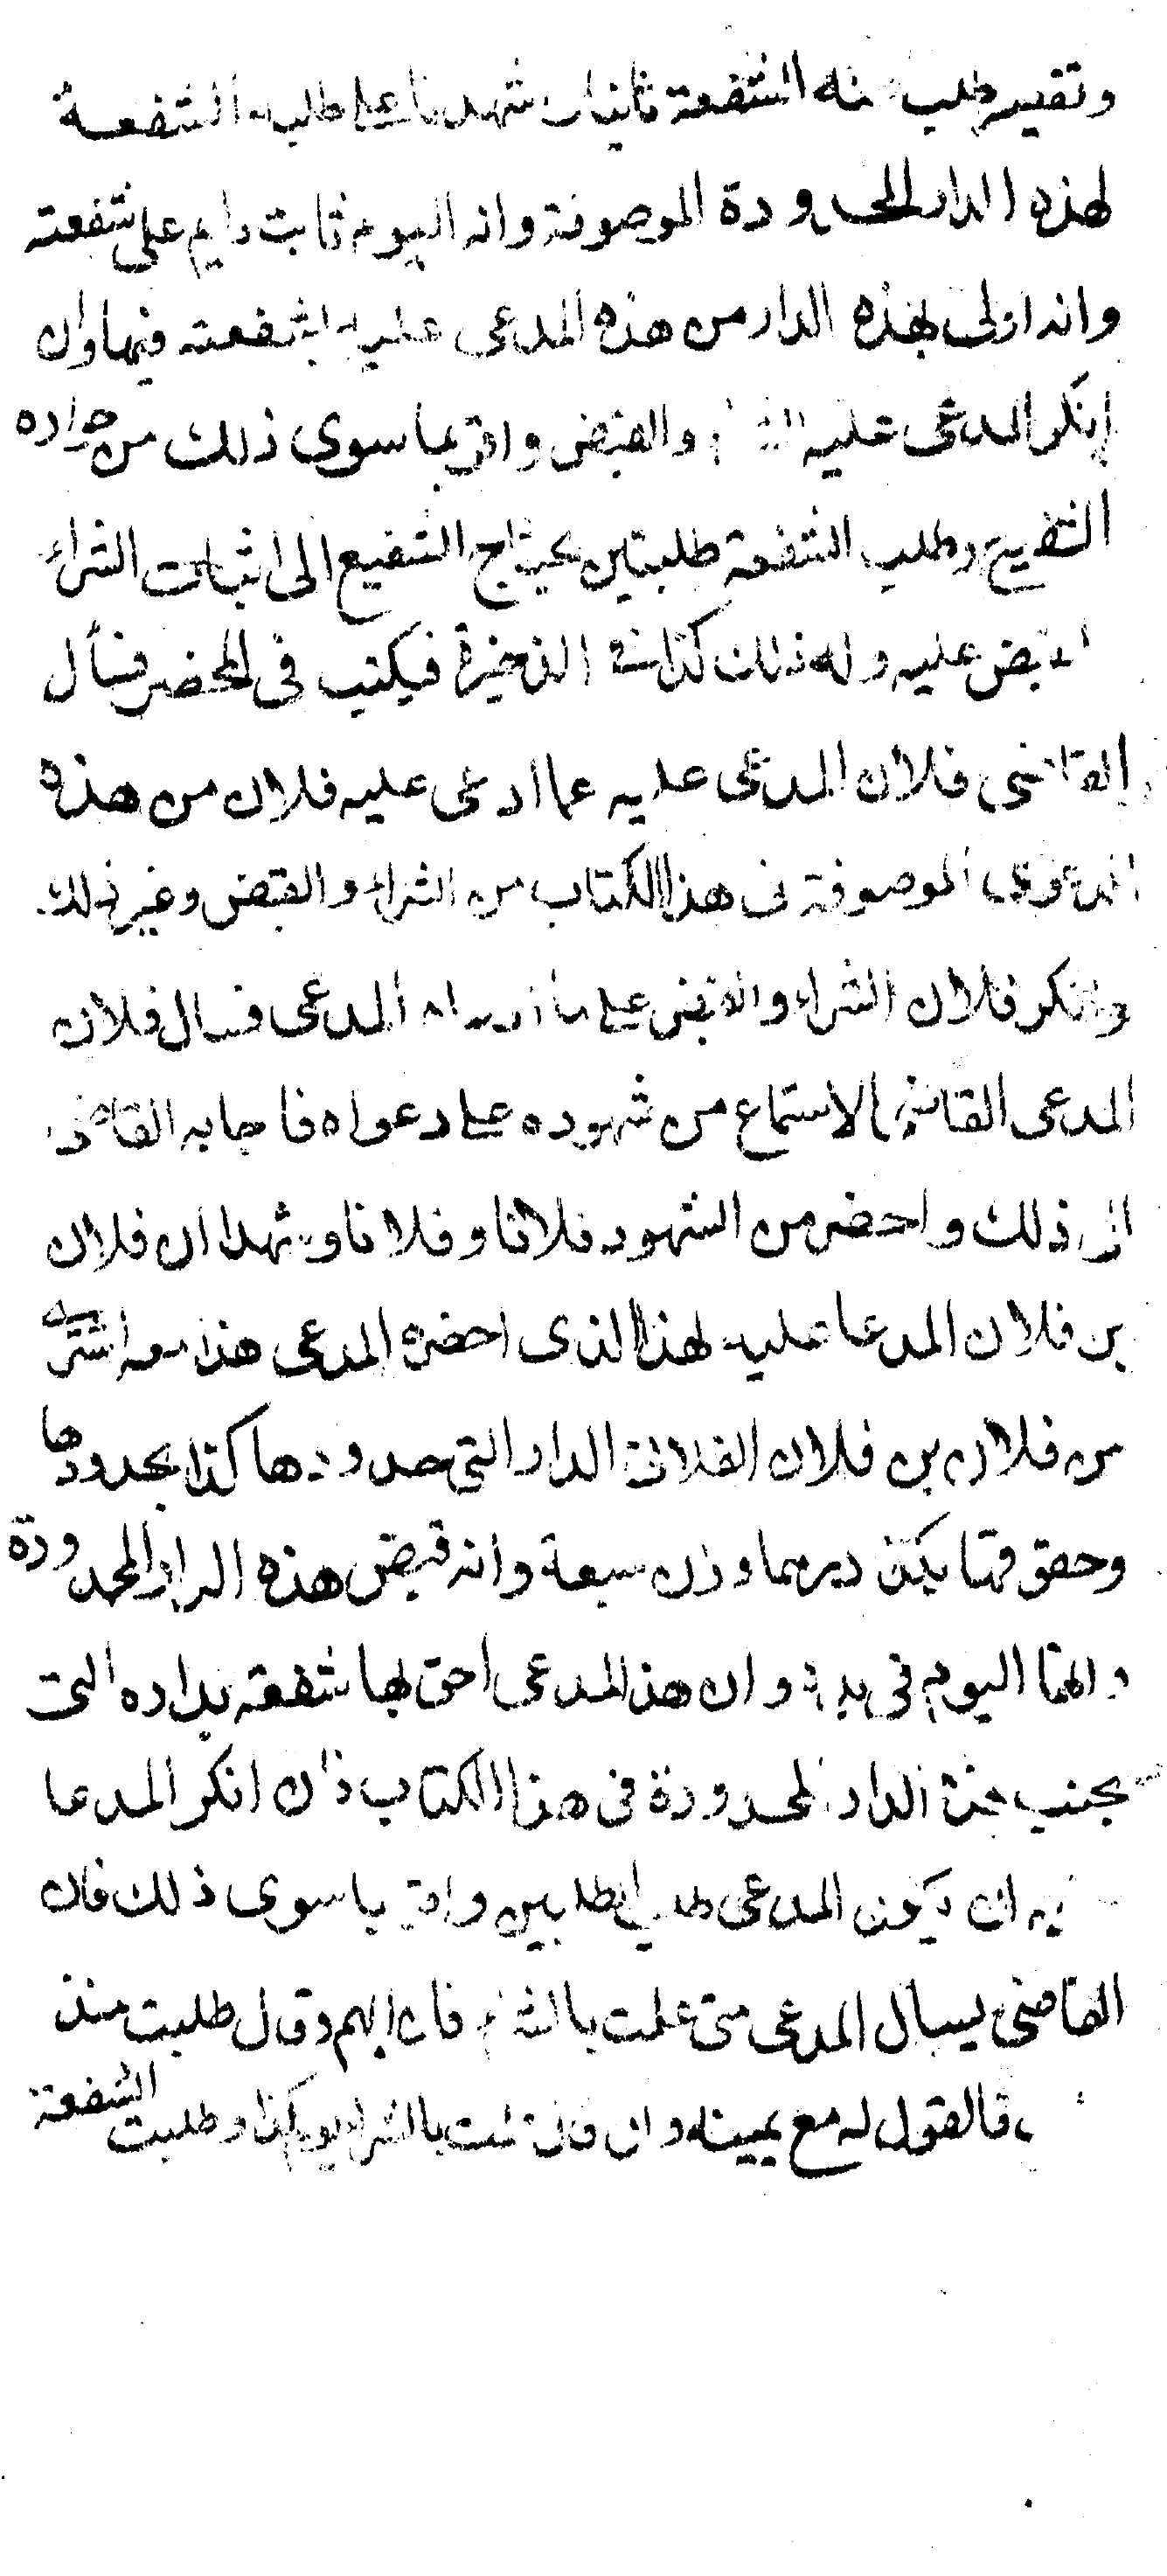 وتفسير طلب منه الشفعة ثانيا شهدنا على طلبه الشفعة
لهذه الدار المحدودة الموصوفة وانه اليوم ثابت دايم على شفعته
وانه اولى بهذه الدار من هذه المدعى عليه بشفعته فيها وان
انكر المدعى عليه والقبض واقر بما سوى ذلك من جواره
الشفيع وطلب الشفعة طلبتين يحتاج الشفيع الى اثبات الشراء
القبض عليه وله ذلك كذا في الذخيرة فيكتب فى المحضر فسأل
القاضى فلان المدعى عليه عما ادعى عليه فلان من هذه
الدعوى الموصوفة فى هذا الكتاب من الشراء والقبض وغير ذلك
وانكر فلان الشراء والقبض على ما المدعى فسال فلان
المدعى القاضى الاستماع من شهوده على دعواه فاجابه القاضى
الى ذلك واحضر من الشهود فلانا وفلانا وشهدا ان فلان
بن فلان المدعا عليه لهذا الذى احضره المدعى هذا معه اشترى
من فلان بن فلان الفلانى الدار التى حدودها كذا بحدودها
وحقوقها بكذا درهما وزن سبعة وانه قبض هذه الدار المحدودة
وانها اليوم فى يده وان هذ المدعى احق لها شفعته بداره التى
بجنب هذه الدار المحدودة فى هذا الكتاب فان انكر المدعا
عليه ان يكون المدعى طلب الطلبين واقر بما سوى ذلك فان
القاضى يسال المدعى متى علمت بالشراء فان ابهم وقال طلبت منذ
فالقول له مع يمينه وان قال علمت بالشراء يوم كذا وطلبت الشفعة